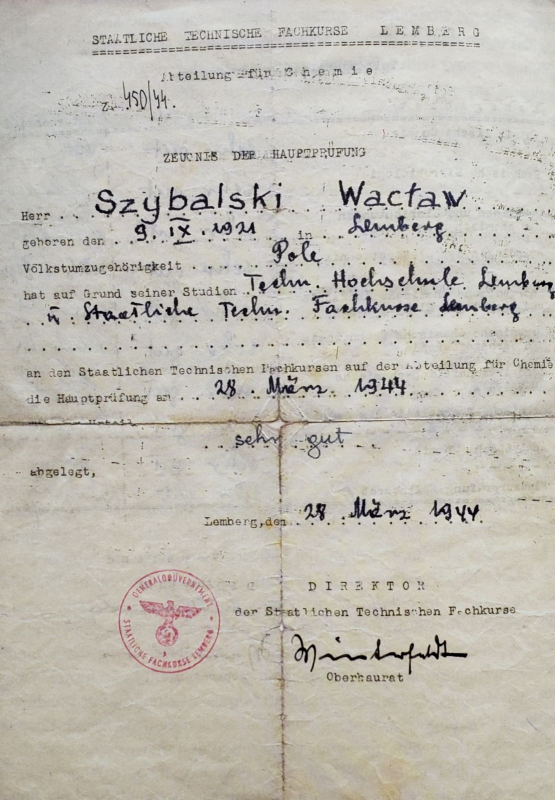 STAATLICHE TECHNISCHE FACHKURSE LEMBERG
Abteilung für Chemie
Z. 450/44.
ZEUGNIS DER HAUPTPRÜFUNG
Herr Szybalski Wacław
geboren den 9. IX. 1921 in Lemberg
Volkstumzugehörigkeit Pole
hat auf Grund seiner Studien Techn. Hochschule Lemberg
u Staatliche Techn. Fachkurse Lemberg
an den Staatlichen Technischen Fachkursen auf der Abteilung für Chemie
die Hauptprüfung am 28 März 1944
Urteil
sehr gut
abgelegt,
Lemberg, den 28 März 1944
DIREKTOR
der Staatlichen Technischen Fachkurse
Winterfeldt
Oberbaurat
GENERALGOUVERNEMENT
STAATLICHE FACHKURSE LEMBERG